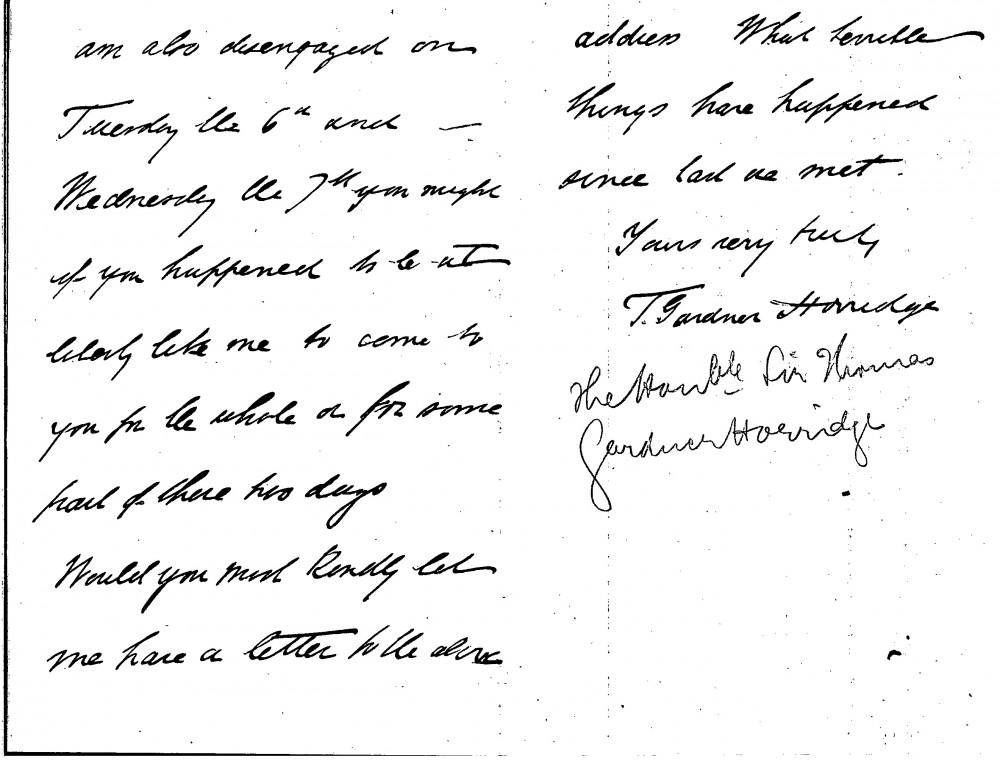 am also disengaged on
Tuesday the 6th and —
Wednesday the 7th you might
if you happened to be at
liberty like me to come to
you for the whole or for some
part of these two days
Would you most kindly let
me have a letter to the above
address What terrible
things have happened
since last we met.
Yours very truly
T. Gardner Horridge
The Honble Sir Thomas
Gardner Horridge